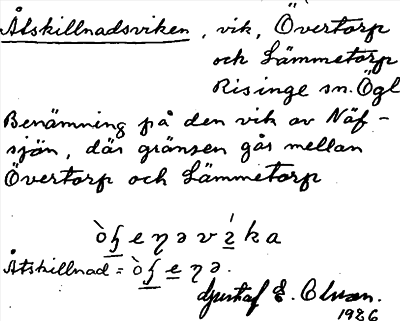 Åtskillnadsviken, vik, Övertorp
och Lämmetorp
Risinge sn. Ögl
Benämning på den vik av Näf-
sjön, där gränsen går mellan
Övertorp och Lämmetorp
Åtskillnad =
Gustaf E. Olsson.
1926